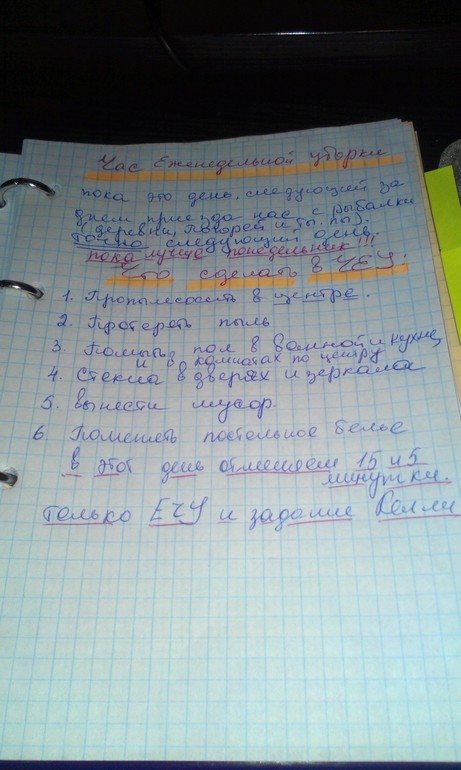 Час Еженедельной уборки
пока это день, следующей за
днем приезда нас с рыбалки
(деревни,
Точно следующий день.
пока лучше понедельник!!!
Что сделать в ЧЕУ.
1. Пропылесосить в центре.
2. Протереть пыль
3. Помыть пол в ванной и кухне
и в комнатах по центру
4. Стекла в дверях и зеркала
5. Вынести мусор.
6. Поменять постельное белье
В этот день отменяем 15 и 5
минутки.
только ЕЧУ и задание Флай